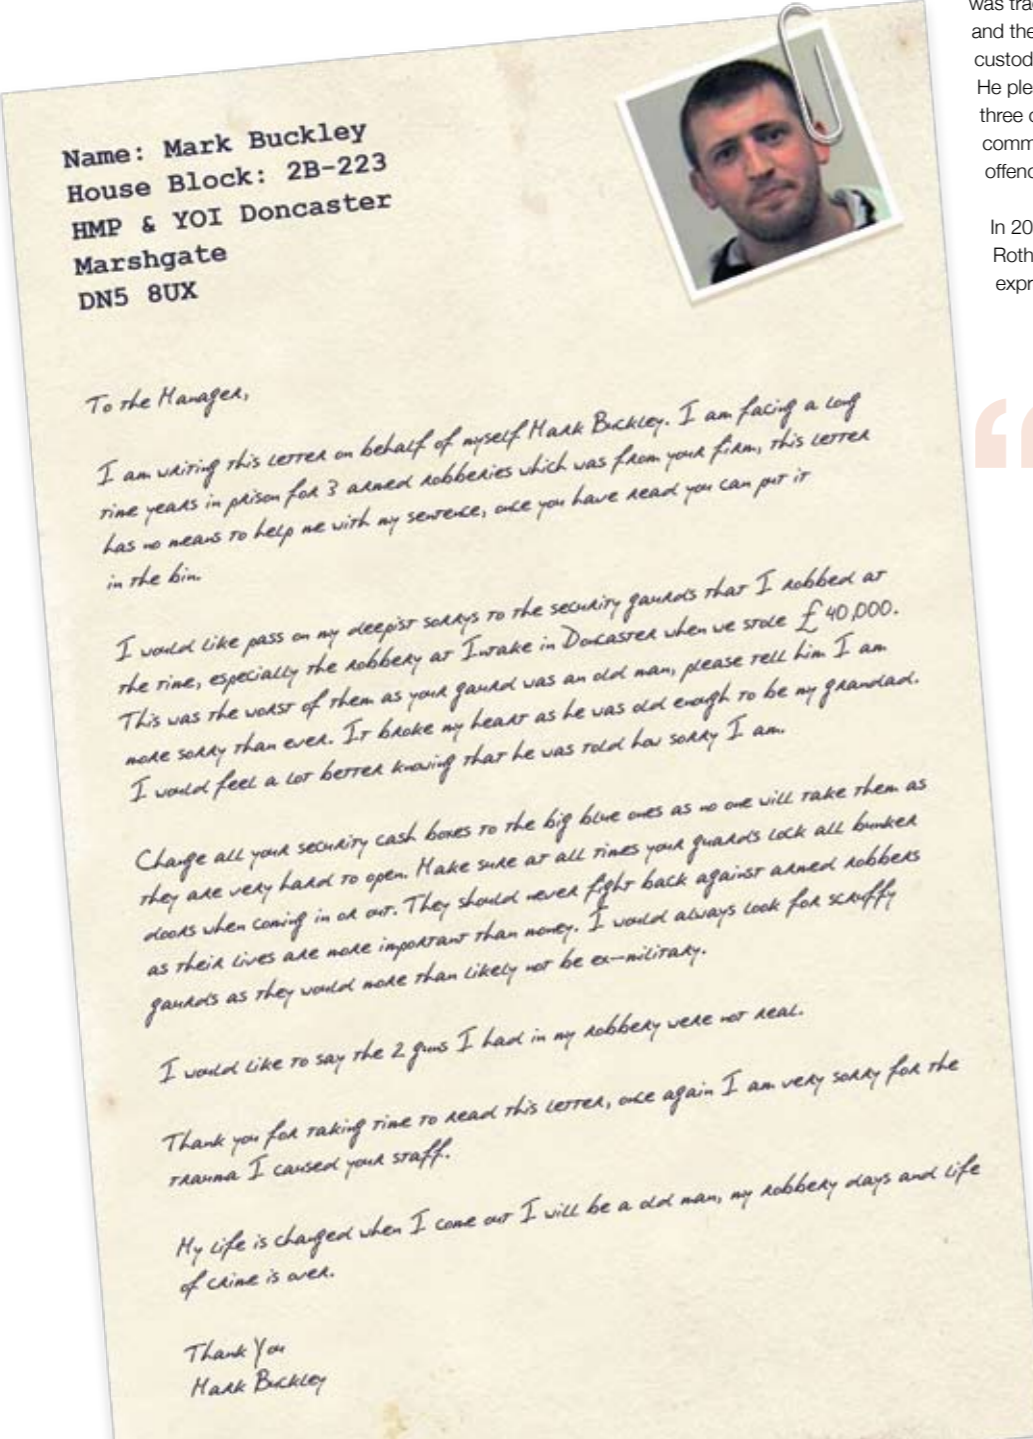 Name: Mark Buckley
House Block: 2B-223
HMP & YOI Doncaster
Marshgate
DN5 8UX
To the Manager,
I am writing this letter on behalf of myself Mark Buckley. I am facing a long
time years in prison for 3 armed robberies which was from your firm, this letter
has no means to help me with my sentence, once you have read you can put it
in the bin.
I would like pass on my deepist sorrys to the security gaurds that I robbed at
the time, especially the robbery at Intake in Doncaster when we stole £40,000.
This was the worst of them as your gaurd was an old man, please tell him I am
more sorry than ever. It broke my heart as he was old enough to be my grandad.
I would feel a lot better knowing that he was told how sorry I am.
Change all your security cash boxes to the big blue ones as no one will take them as
they are very hard to open. Make sure at all times your guards lock all bunker
doors when coming in or out. They should never fight back against armed robbers
as their lives are more important than money. I would always look for scruffy
gaurds as they would more than likely not be ex-military.
I would like to say the 2 guns I had in my robbery were not real.
Thank you for taking time to read this letter, once again I am very sorry for the
trauma I caused your staff.
My life is changed when I come out I will be a old man, my robbery days and life
of crime is over.
Thank You
Mark Buckley
was
and the
custod
He ple
three
comm
offenc
In 20
Roth
expr
“